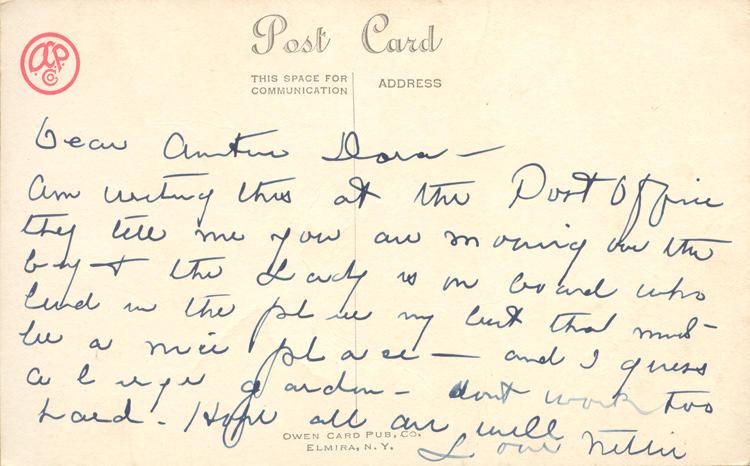 D.C.P. Co.
Post Card
THIS SPACE FOR
COMMUNICATION
ADDRESS
Dear Auntie Dora —
Am writing this at the Post Office
they tell me you are moving over the
bay + the Lady is on board who
lived in the place my but that must
be a nice place — and I guess
a large garden — dont work too
hard. Hope all are well
Love Nettie
OWEN CARD PUB. CO.
ELMIRA, N. Y.